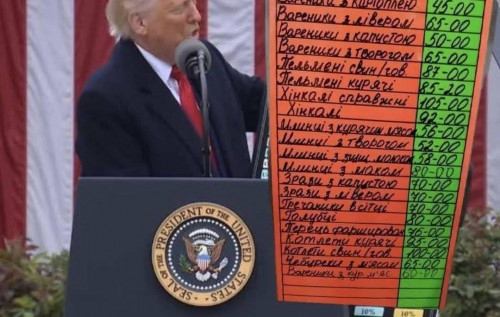 Вареники з картоплею 45-00
Вареники з лівером 65-00
Вареники з капустою 50-00
Вареники з творогом 65-00
Пельмені свин/гов. 87-00
Пельмені курячі 85-20
Хінкалі справжні 105-00
Хінкалі 92-00
Млинці з курячим мясом 56-00
Млинці з творогом 52-00
Млинці з 58-00
Млинці з маком 80-00
Зрази з капустою 70-00
Зрази з лівером 70-00
Гречаники вситці 70-00
Голубці 80-00
Перець фарширован 76-00
Котлети курячі 95-00
Котлети свин/гов. 100-00
Чебуреки з мясом 65-00
Вареники з кур м'яс 60-00
SEAL OF THE PRESIDENT OF THE UNITED STATES
10% 10%